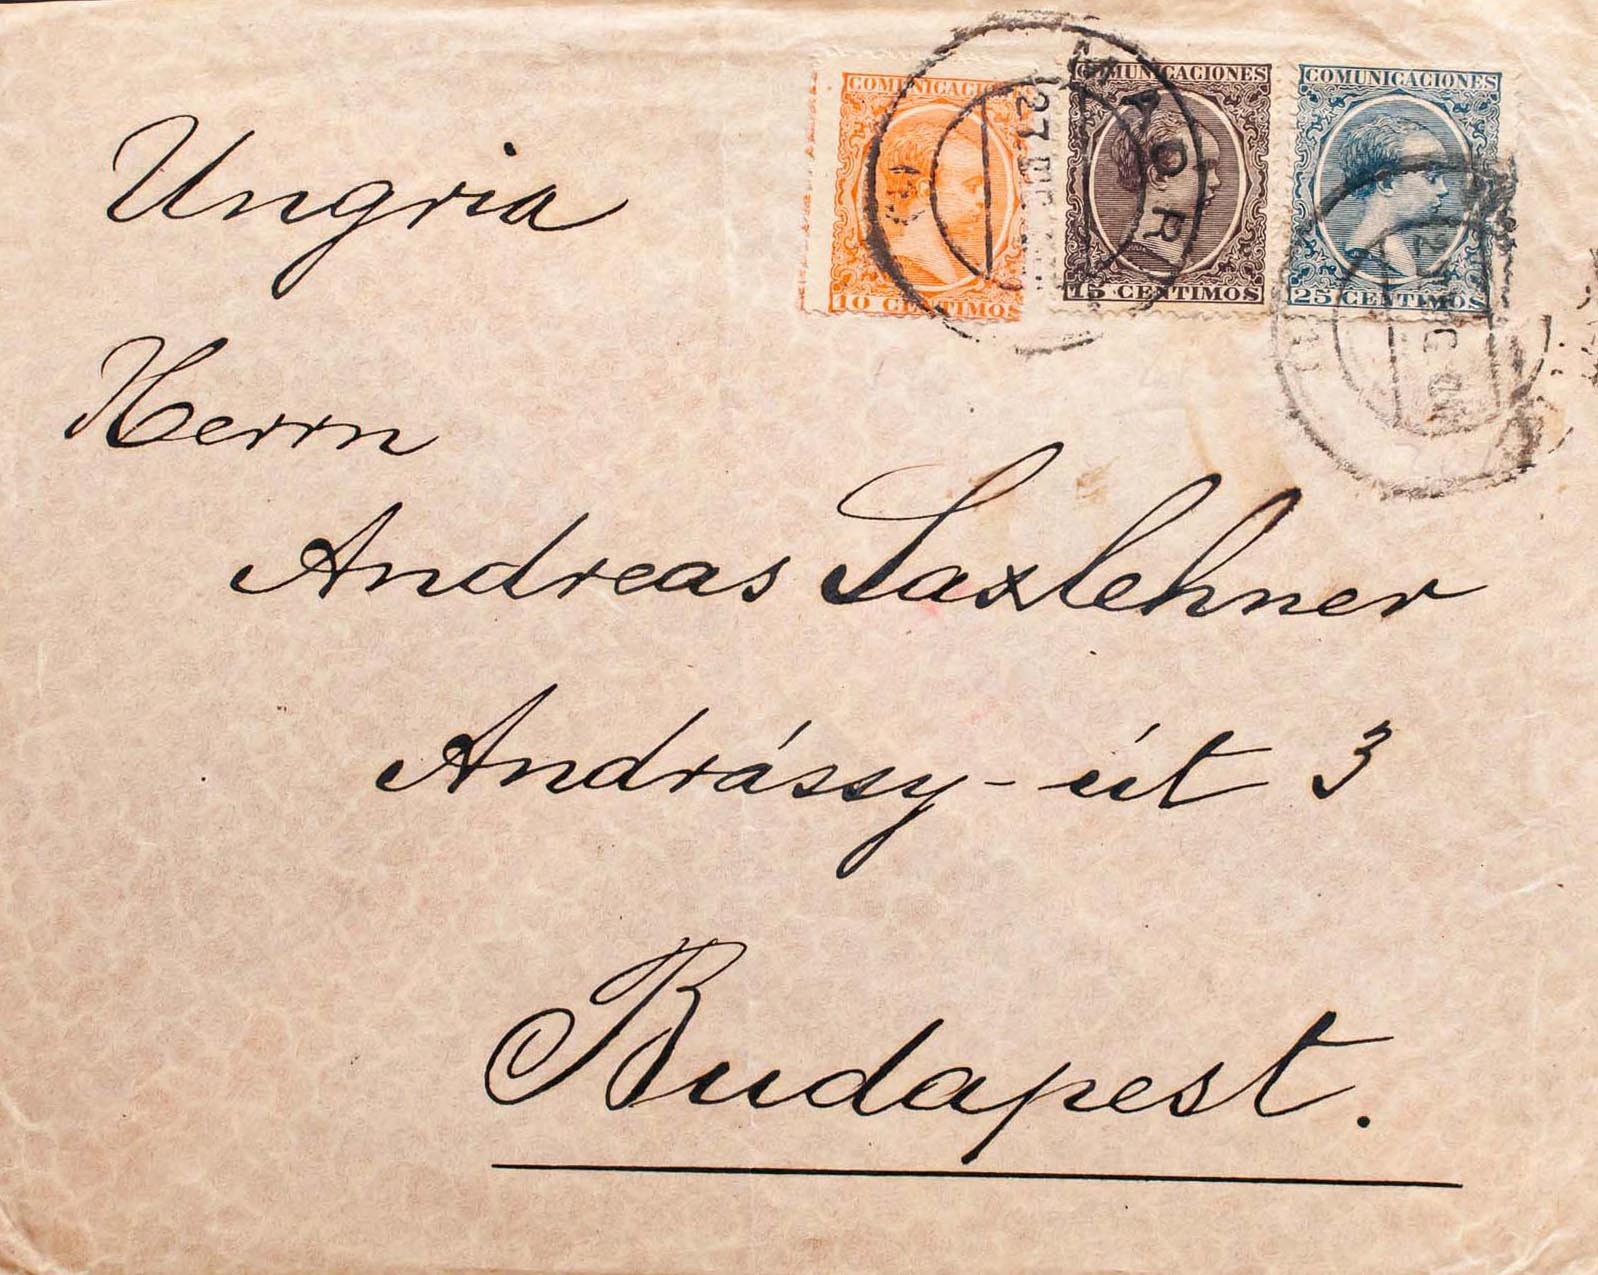 COMUNICACIONES COMUNICACIONES COMUNICACIONES
10 CENTIMOS 15 CENTIMOS 25 CENTIMOS
27 DIC
Ungria
Herrn
Andreas Saxlehner
Andrássy-út 3
Budapest.